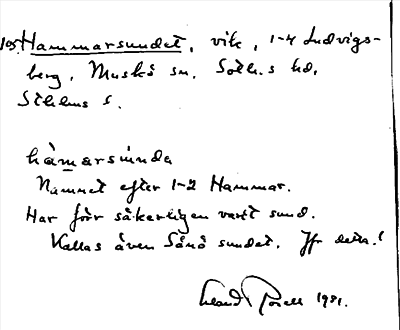 105. Hammarsundet, vik, 1-4 Ludvigs-
berg, Muskö sn. Soth.s hd.
Sthlms l.
hàmarsúnda
Namnet efter 1-2 Hammar.
Har förr säkerligen varit sund.
Kallas även Sånö sundet. Jfr detta!
1981.